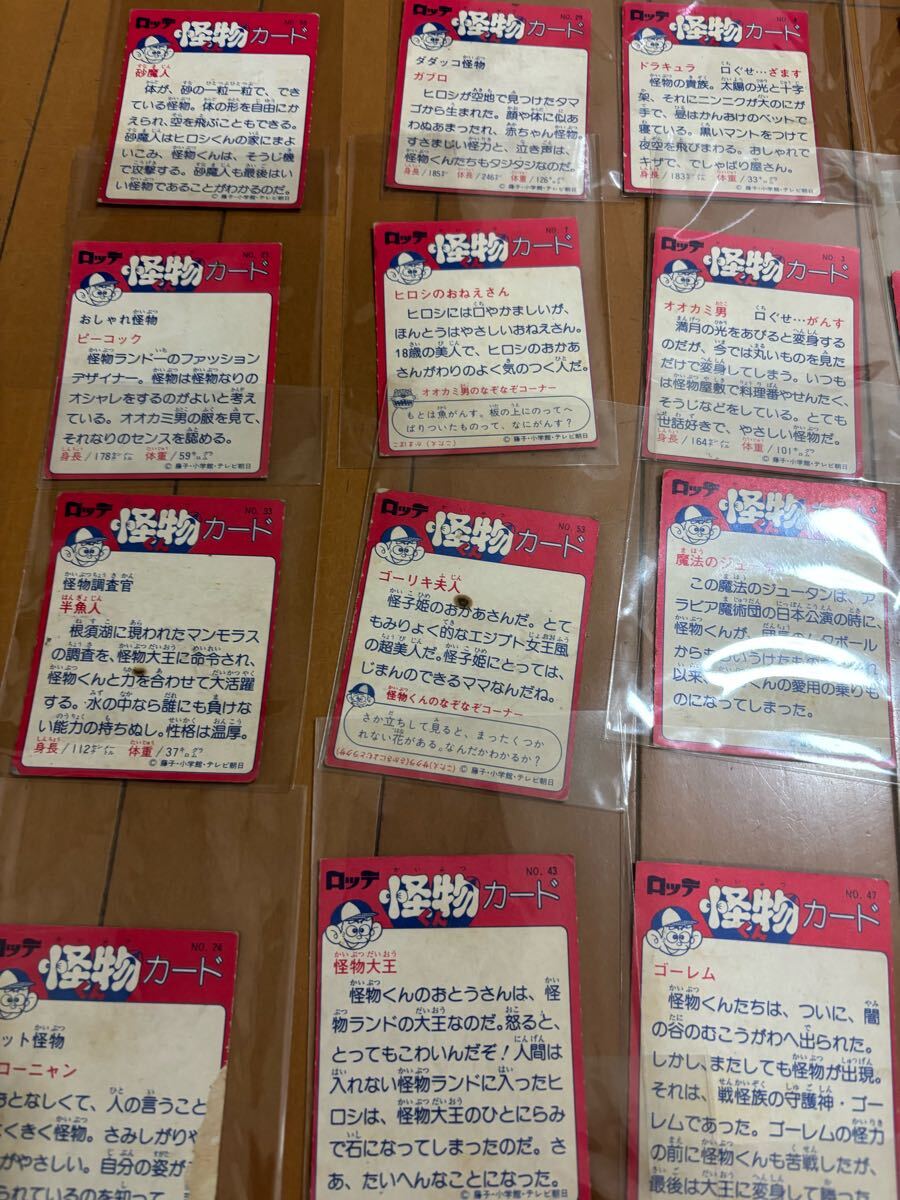 ロッテ 怪物くんカード NO. 58
砂魔人
体が、砂の一粒一粒で、でき
ている怪物。体の形を自由にか
えられ、空を飛ぶこともできる。
砂魔人はヒロシくんの家にまよ
いこみ、怪物くんは、そうじ機
で攻撃する。砂魔人も最後はい
い怪物であることがわかるのだ。
© 藤子・小学館・テレビ朝日
ロッテ 怪物くんカード NO. 29
ダダッコ怪物
ガブロ
ヒロシが空地で見つけたタマ
ゴから生まれた。顔や体に似あ
わぬあまったれ、赤ちゃん怪物。
すさまじい怪力と、泣き声は、
怪物くんたちもタジタジなのだ。
身長/185センチ 体長/246センチ 体重/126キロ
© 藤子・小学館・テレビ朝日
ロッテ 怪物くんカード NO. 4
ドラキュラ 口ぐせ…ざます
怪物の貴族。太陽の光と十字
架、それにニンニクが大のにが
手で、昼はかんおけのベットで
寝ている。黒いマントをつけて
夜空を飛びまわる。おしゃれで
キザで、でしゃばり屋さん。
身長/183センチメートル 体重/33キログラム
© 藤子・小学館・テレビ朝日
ロッテ 怪物くんカード
おしゃれ怪物
ピーコック
怪物ランド一のファッション
デザイナー。怪物は怪物なりの
オシャレをするのがよいと考え
ている。オオカミ男の服を見て、
それなりのセンスを認める。
身長/178センチメートル 体重/59キログラム
© 藤子・小学館・テレビ朝日
ロッテ 怪物くんカード NO. 7
ヒロシのおねえさん
ヒロシには口やかましいが、
ほんとうはやさしいおねえさん。
18歳の美人で、ヒロシのおかあ
さんがわりのよく気のつく人だ。
オオカミ男のなぞなぞコーナー
もとは魚がんす。板の上にのってへ
ばりついたものって、なにがんす?
(こたえ)かまぼこ
© 藤子・小学館・テレビ朝日
ロッテ 怪物くんカード NO. 3
オオカミ男 口ぐせ…がんす
満月の光をあびると変身する
のだが、今では丸いものを見た
だけで変身してしまう。いつも
は怪物屋敷で料理番やせんたく、
そうじなどをしている。とても
世話好きで、やさしい怪物だ。
身長/164センチメートル 体重/101キログラム
© 藤子・小学館・テレビ朝日
ロッテ 怪物くんカード NO. 33
怪物調査官
半魚人
根須湖に現われたマンモラス
の調査を、怪物大王に命令され、
怪物くんと力を合わせて大活躍
する。水の中なら誰にも負けな
い能力の持ちぬし。性格は温厚。
身長/112センチメートル 体重/37キログラム
© 藤子・小学館・テレビ朝日
ロッテ 怪物くんカード NO. 53
ゴーリキ夫人
怪子姫のおかあさんだ。とて
もみりょく的なエジプト女王風
の超美人だ。怪子姫にとっては、
じまんのできるママなんだね。
怪物くんのなぞなぞコーナー
さか立ちして見ると、まったくつか
れない花がある。なんだかわかるか?
© 藤子・小学館・テレビ朝日
ロッテ 怪物くんカード
魔法のジュータン
この魔法のジュータンは、ア
ラビア魔術団の日本公演の時に、
怪物くんが、
からもらいうけたもの
以来、 くんの愛用の乗りも
のになってしまった。
ロッテ 怪物くんカード NO. 26
ット怪物
ローニャン
おとなしくて、人の言うこと
くきく怪物。さみしがりや
がやさしい。自分の姿が
られているのを知って
ロッテ 怪物くんカード NO. 43
怪物大王
怪物くんのおとうさんは、怪
物ランドの大王なのだ。怒ると、
とってもこわいんだぞ!人間は
入れない怪物ランドに入ったヒ
ロシは、怪物大王のひとにらみ
で石になってしまったのだ。さ
あ、たいへんなことになった。
© 藤子・小学館・テレビ朝日
ロッテ 怪物くんカード NO. 47
ゴーレム
怪物くんたちは、ついに、闇
の谷のむこうがわへ出られた。
しかし、またしても怪物が出現。
それは、戦怪族の守護神・ゴー
レムであった。ゴーレムの怪力
の前に怪物くんも苦戦したが、
最後は大王に変身して勝った